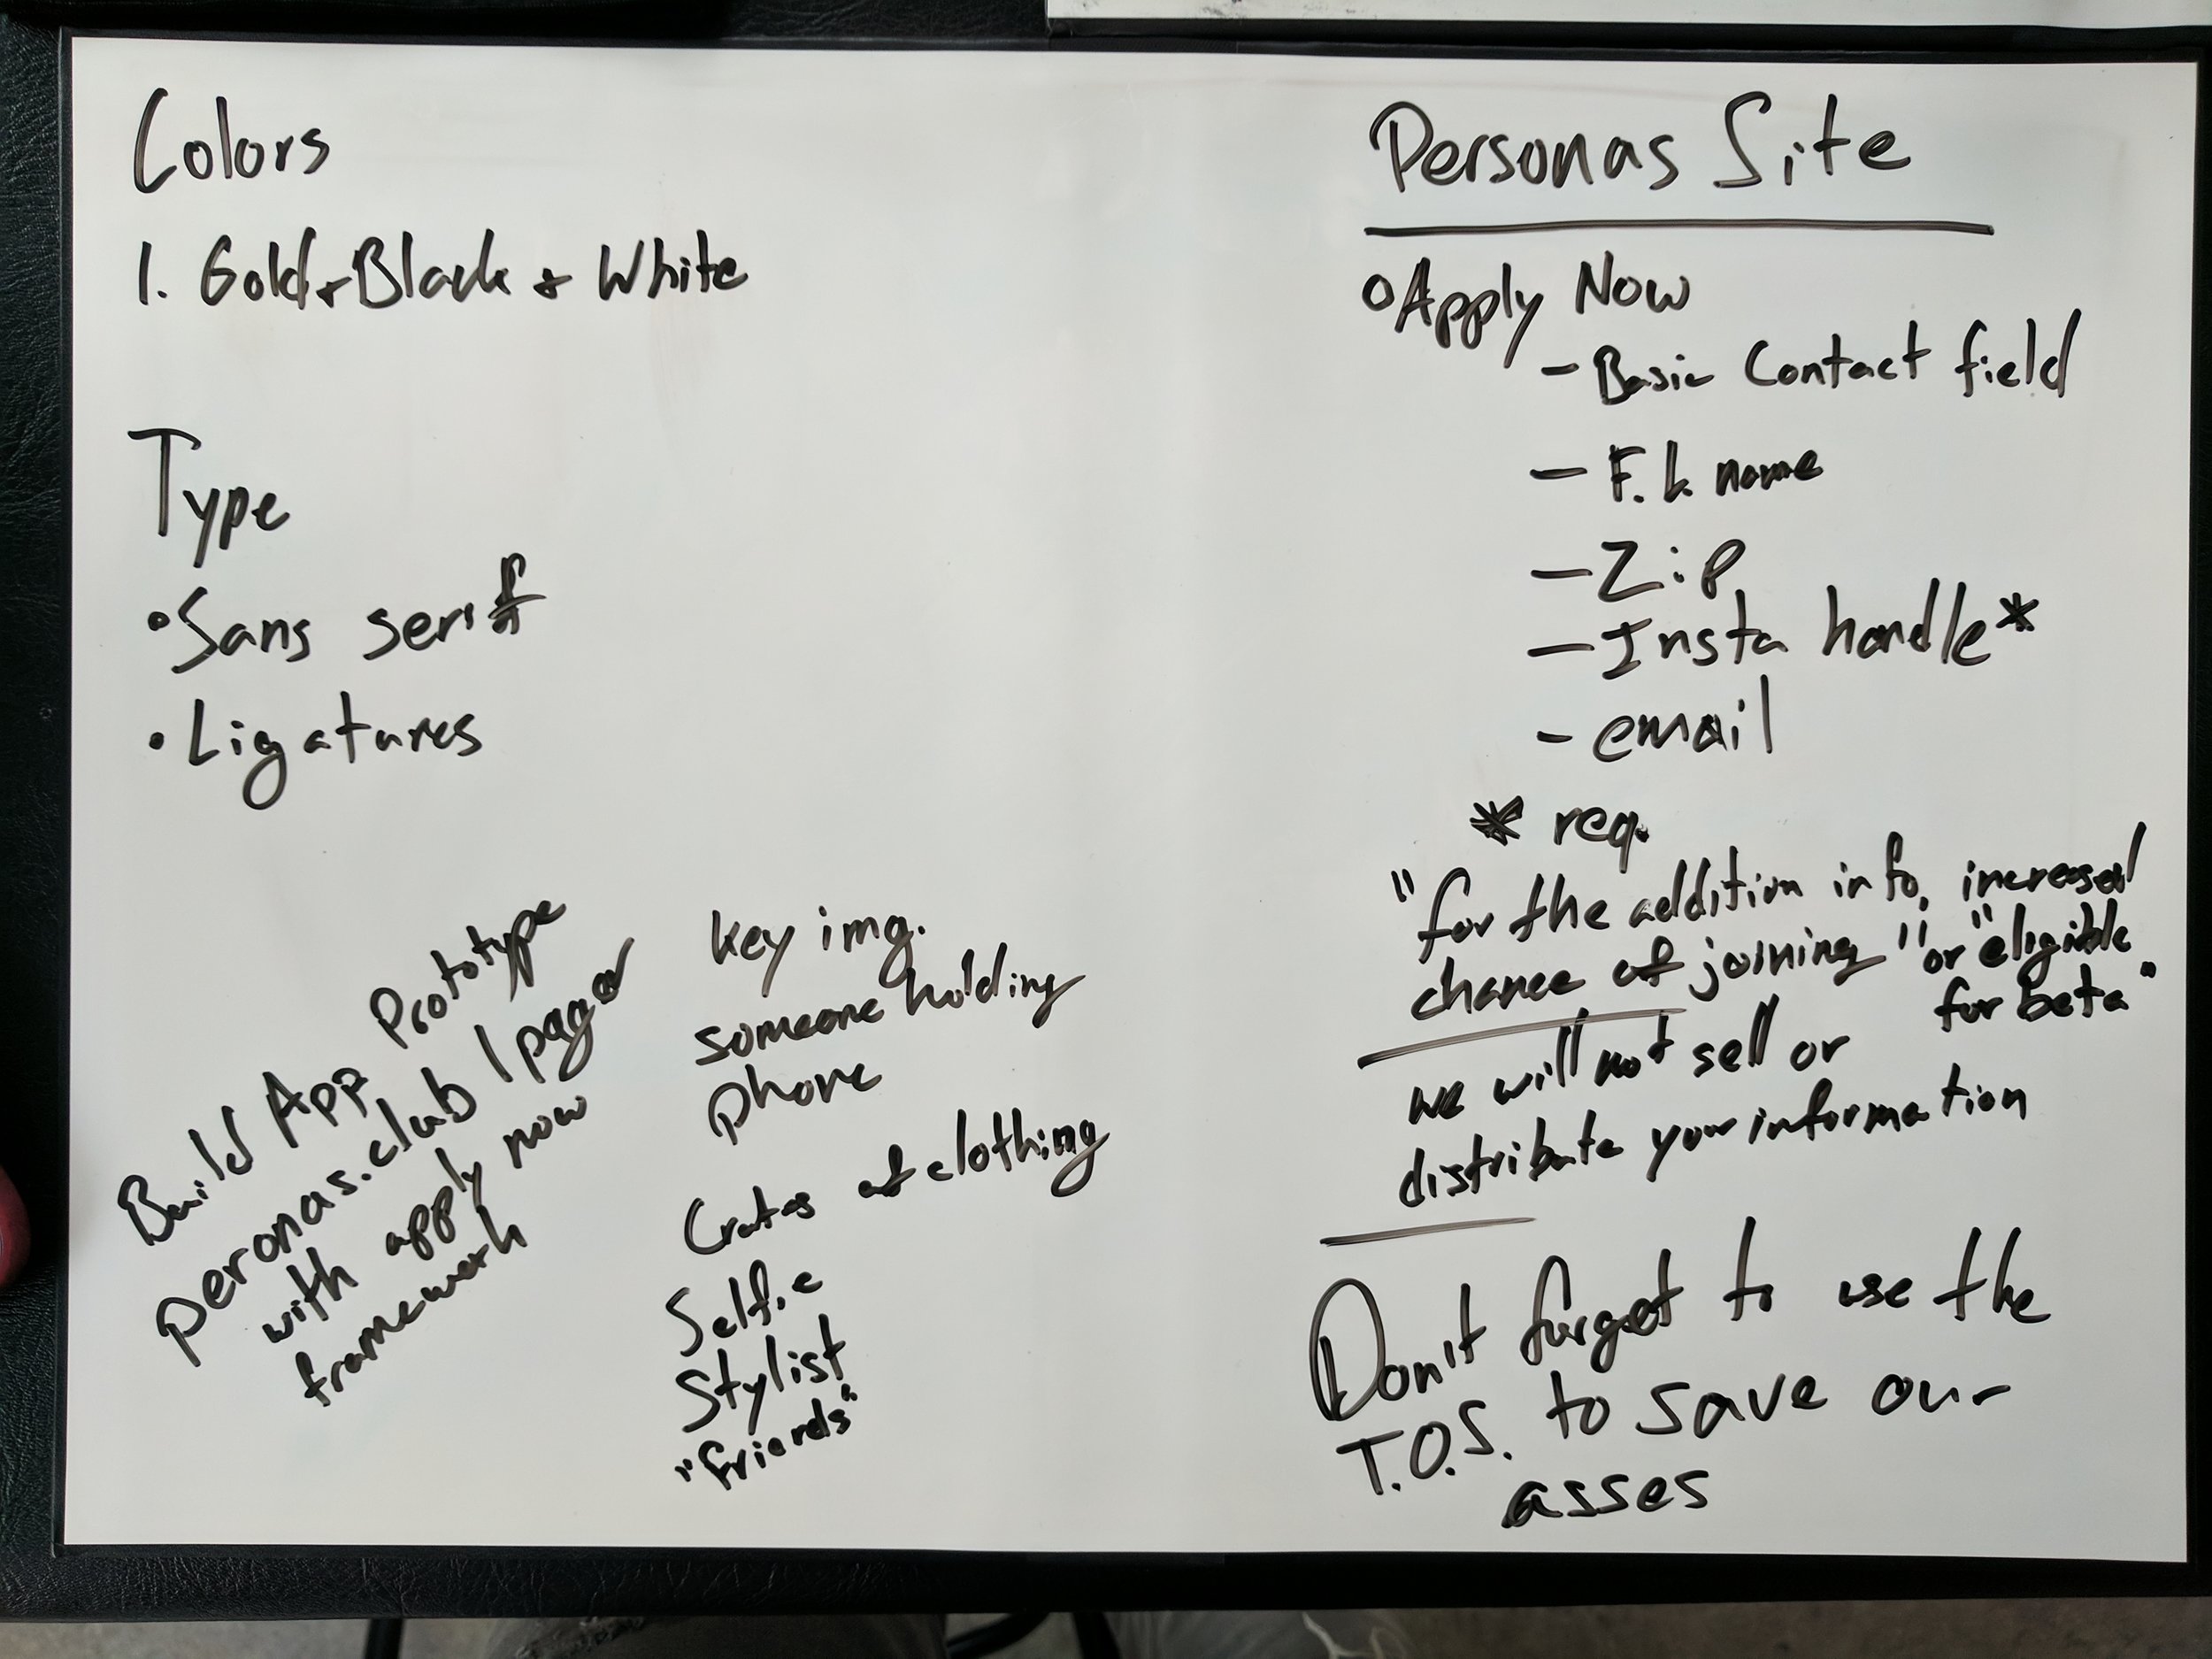 Colors
1. Gold + Black + White
Type
• Sans serif
• Ligatures
Build App Prototype
peronas.club 1 pager
with apply now
framework
key img.
someone holding
phone
Crates of clothing
Selfie
Stylist
"friends"
Personas Site
o Apply Now
- Basic Contact field
- F. L. name
- Zip
- Insta handle*
- email
* req.
"for the addition info, increased
chance of joining" or "eligible
for beta"
we will not sell or
distribute your information
Don't forget to use the
T.O.S. to save our
asses